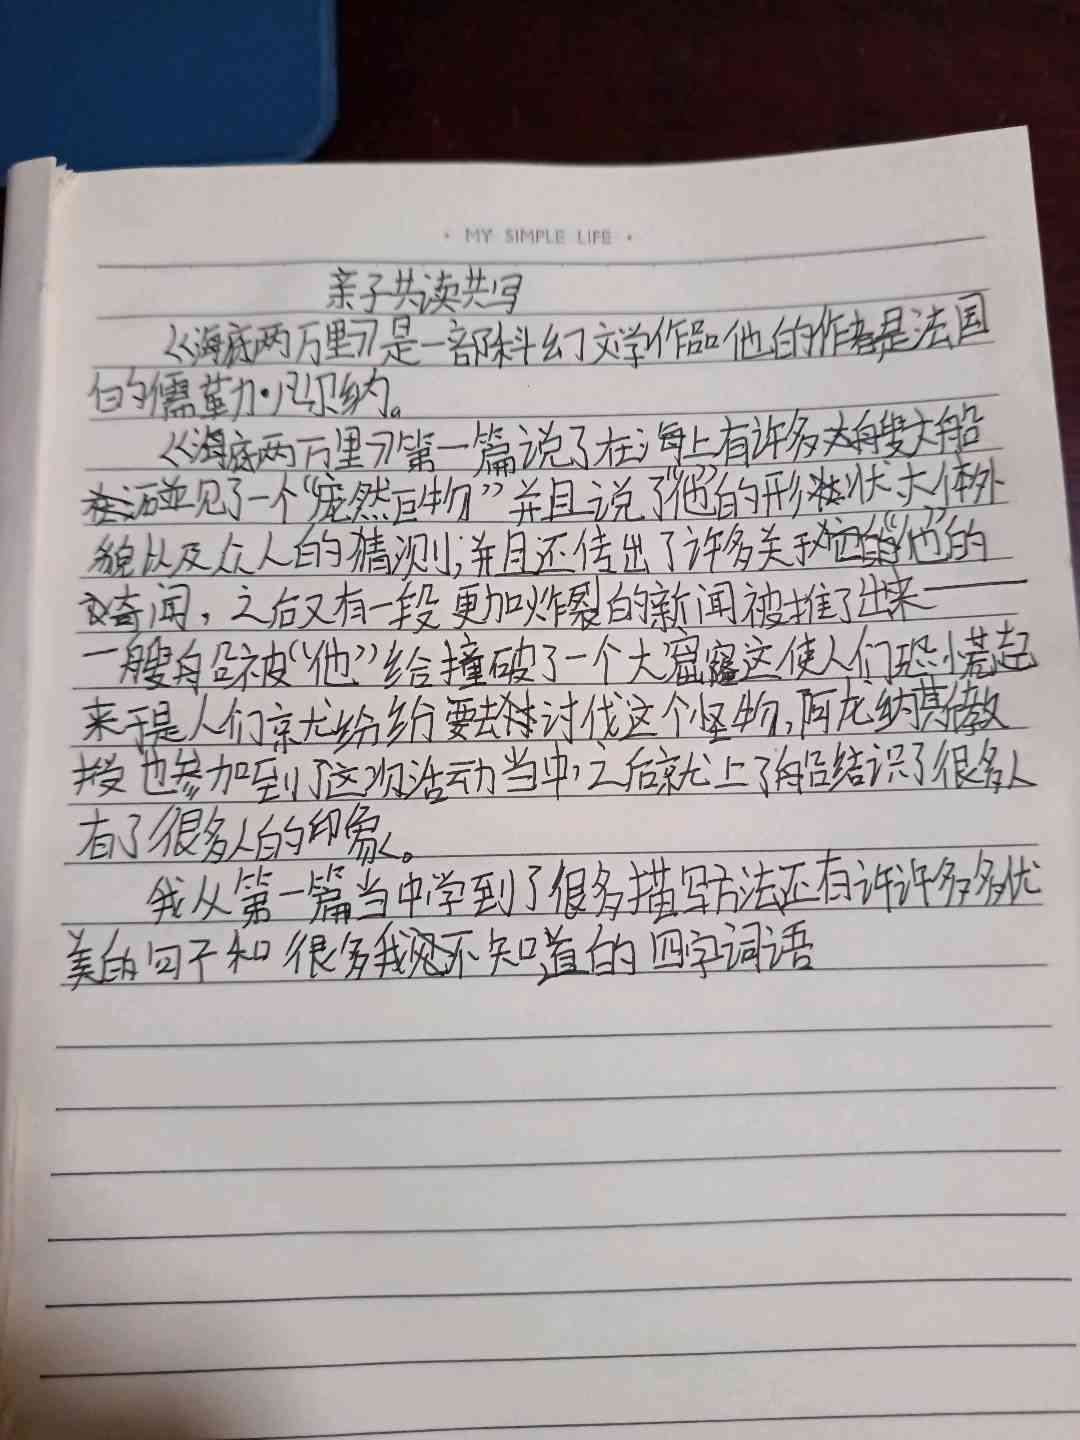 MY SIMPLE LIFE
亲子共读共写
《海底两万里》是一部科幻文学作品他的作者是法国
的儒勒·凡尔纳。
《海底两万里》第一篇说了在海上有许多艘大船
碰见了一个“庞然巨物”并且说了“他”的形状大体外
貌以及众人的猜测;并且还传出了许多关于“他”的
奇闻，之后又有一段更加炸裂的新闻被推了出来——
一艘船被“他”给撞破了一个大窟窿这使人们恐慌起
来于是人们就纷纷要去讨伐这个怪物,阿龙纳其教
授也参加到了这次活动当中,之后就上了船结识了很多人
有了很多人的印象。
我从第一篇当中学到了很多描写方法还有许许多多优
美的句子和很多我不知道的四字词语